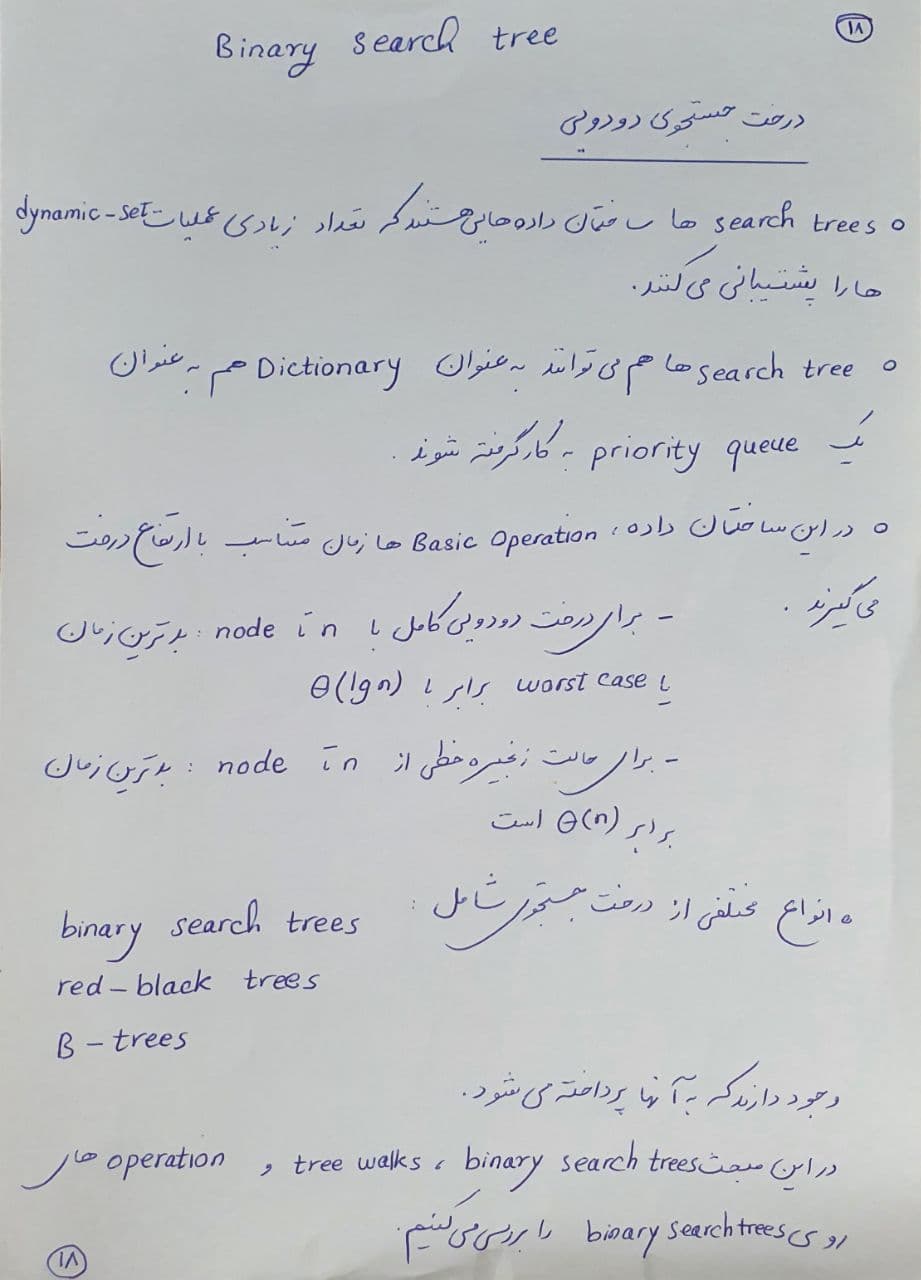 ۱۸
Binary search tree
درخت جستجوی دودویی
○ search trees ها ساختمان داده‌هایی هستند که تعداد زیادی عملیات dynamic-set
ها را پشتیبانی می‌کنند.
○ search tree ها هم می‌توانند به عنوان Dictionary هم به عنوان
یک priority queue به کار گرفته شوند.
○ در این ساختمان داده، Basic Operation ها زمان متناسب با ارتفاع درخت
می‌گیرند.
- برای درخت دودویی کامل با n تا node : بدترین زمان
یا worst case برابر با θ(lg n)
- برای حالت زنجیره خطی از n تا node : بدترین زمان
برابر θ(n) است
○ انواع مختلفی از درخت جستجوی شامل :
binary search trees
red-black trees
B-trees
وجود دارند که به آنها پرداخته می‌شود.
در این مبحث binary search trees، tree walks و operation های
روی binary search trees را بررسی می‌کنیم.
۱۸